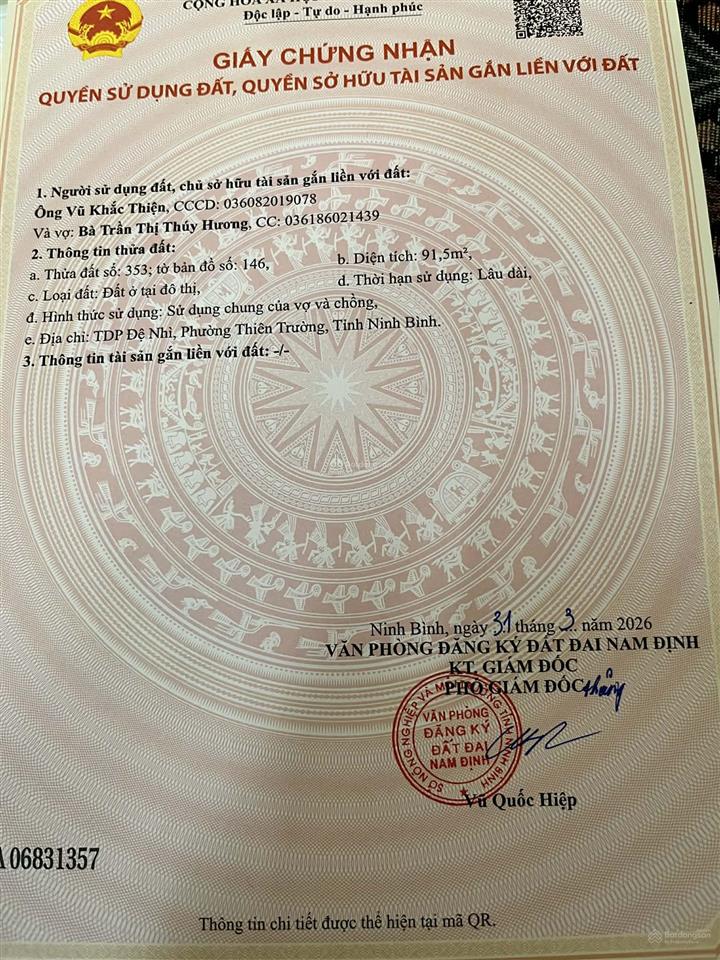 Độc lập - Tự do - Hạnh phúc
GIẤY CHỨNG NHẬN
QUYỀN SỬ DỤNG ĐẤT, QUYỀN SỞ HỮU TÀI SẢN GẮN LIỀN VỚI ĐẤT
1. Người sử dụng đất, chủ sở hữu tài sản gắn liền với đất:
Ông Vũ Khắc Thiện, CCCD: 036082019078
Và vợ: Bà Trần Thị Thúy Hương, CC: 036186021439
2. Thông tin thửa đất:
a. Thửa đất số: 353; tờ bản đồ số: 146, b. Diện tích: 91,5m²,
c. Loại đất: Đất ở tại đô thị, d. Thời hạn sử dụng: Lâu dài,
đ. Hình thức sử dụng: Sử dụng chung của vợ và chồng,
e. Địa chỉ: TDP Đệ Nhì, Phường Thiên Trường, Tỉnh Ninh Bình.
3. Thông tin tài sản gắn liền với đất: -/-
Ninh Bình, ngày 31 tháng 3 năm 2026
VĂN PHÒNG ĐĂNG KÝ ĐẤT ĐAI NAM ĐỊNH
KT. GIÁM ĐỐC
PHÓ GIÁM ĐỐC
VĂN PHÒNG
ĐĂNG KÝ
ĐẤT ĐAI
NAM ĐỊNH
Vũ Quốc Hiệp
06831357
Thông tin chi tiết được thể hiện tại mã QR.
Batdongsan